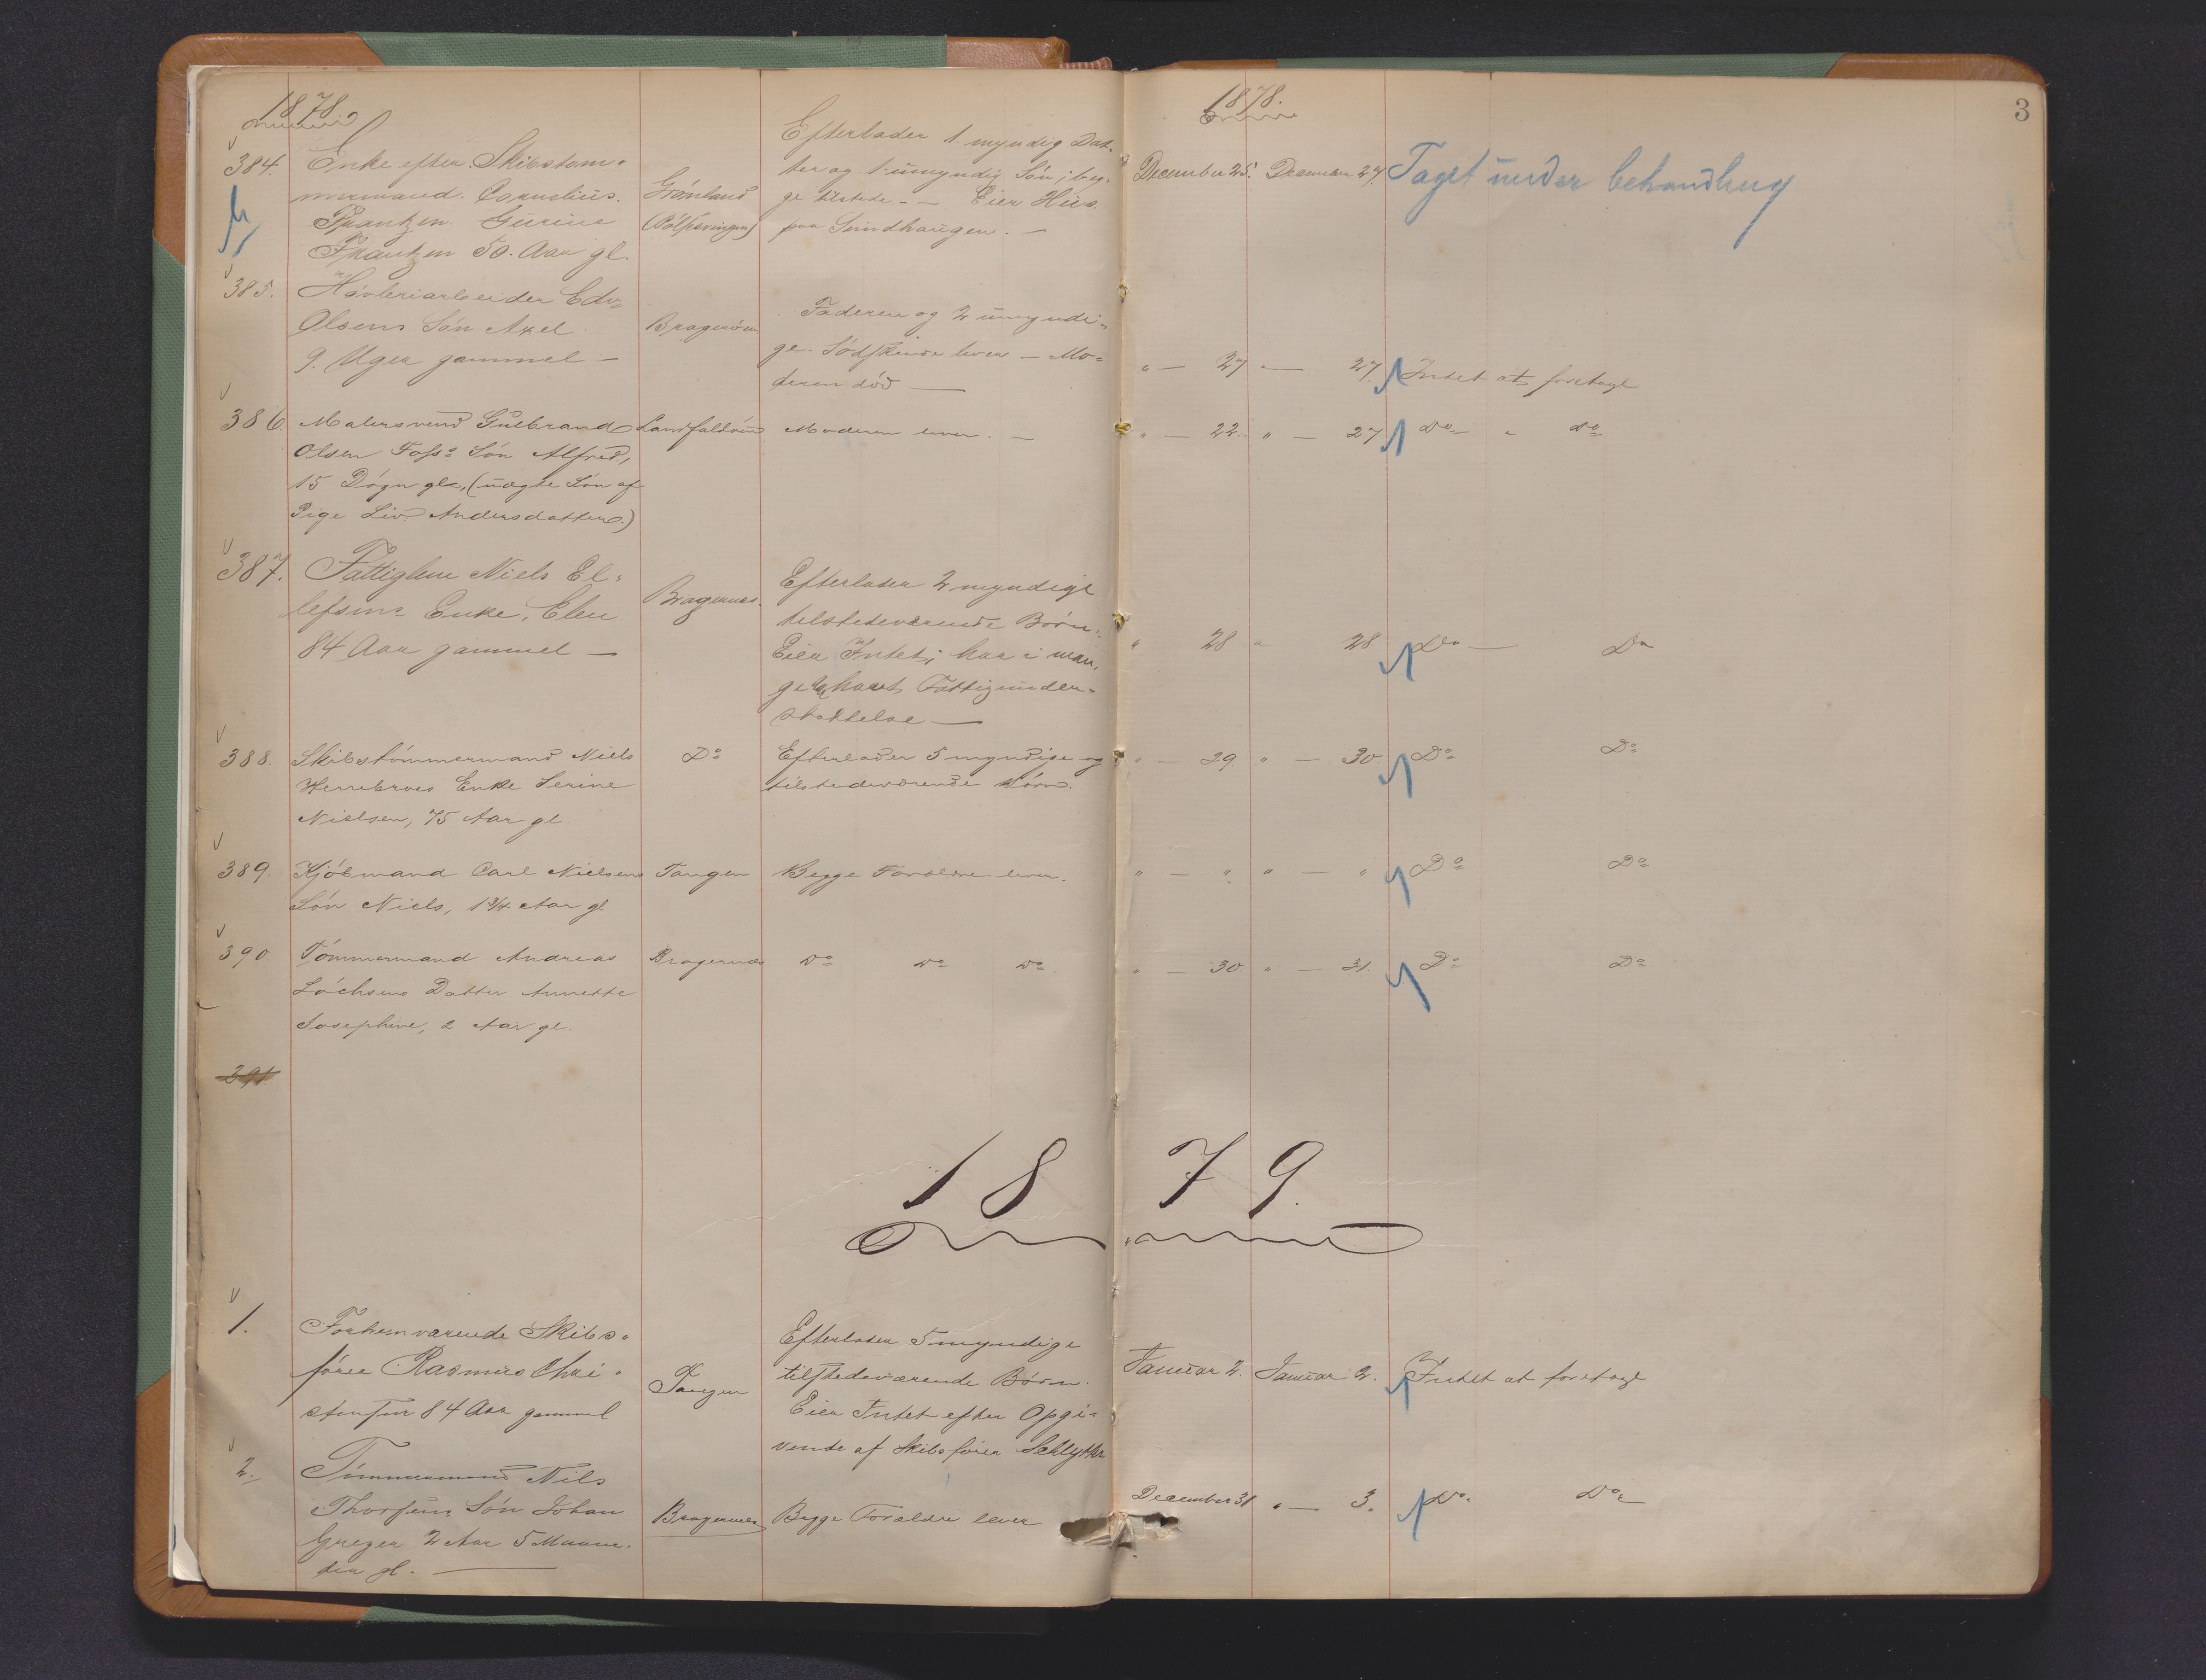 1878.
1878.
3
384.
Enke efter Skibstøm-
mermand Cornelius
Frantzen Gurine
Frantzen 50. Aar gl.
Grønland
Efterlader 1 myndig Dat-
ter og 1 umyndig Søn; beg-
ge tilstede - Eier Hus
paa Sundhaugen. -
December 25. December 27. Taget under behandling
385.
Høvleriarbeider Edv.
Olsens Søn Axel
9. Uger gammel -
Bragernæs
Faderen og 2 umyndi-
ge Sødskende lever - Mo-
deren død -
" - 27 " - 27. Intet at foretage
386.
Malersvend Gulbrand
Olsen Foss's Søn Alfred,
15 Døgn gl., (uægte Søn af
Pige Liv Andersdatter.)
Landfaldøen
Moderen lever. -
" - 22. " - 27 Do " Do
387.
Fattiglem Niels El-
lefsens Enke, Elen
84 Aar gammel -
Bragernæs.
Efterlader 2 myndige
tilstedeværende Børn.
Eier Intet; har i man-
ge Aar havt Fattigunder-
støttelse -
" 28 " 28 Do - Do
388.
Skibstømmermand Niels
Herrebroes Enke Serine
Nielsen, 75 Aar gl
Do
Efterlader 5 myndige og
tilstedeværende Børn.
" - 29. " - 30 Do Do
389.
Kjøbmand Carl Nielsens
Søn Niels, 1 3/4 Aar gl
Tangen
Begge Forældre lever.
" - " " - " Do Do
390
Tømmermand Andreas
Løchsens Datter Annette
Josephine, 2 Aar gl.
Bragernæs
Do Do Do
" - 30. " - 31. Do Do
391
1879.
1.
Forhenværende Skibs-
fører Rasmus Chri-
stensen 84 Aar gammel
Tangen
Efterlader 5 myndige
tilstedeværende Børn.
Eier Intet efter Opgi-
vende af Skibsfører Schlytter
Januar 2. Januar 2. Intet at foretage
2.
Tømmermand Nils
Thorsens Søn Johan
Greger 2 Aar 5 Maane-
der gl. -
Bragernæs
Begge Forældre lever
December 31 " - 3. Do Do